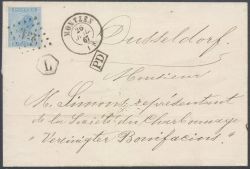 MONTZEN
PD
L
Dusseldorf.
Monsieur
M. Simons, représentant
de la Société du Charbonnage
"Vereinigter Bonifacius"